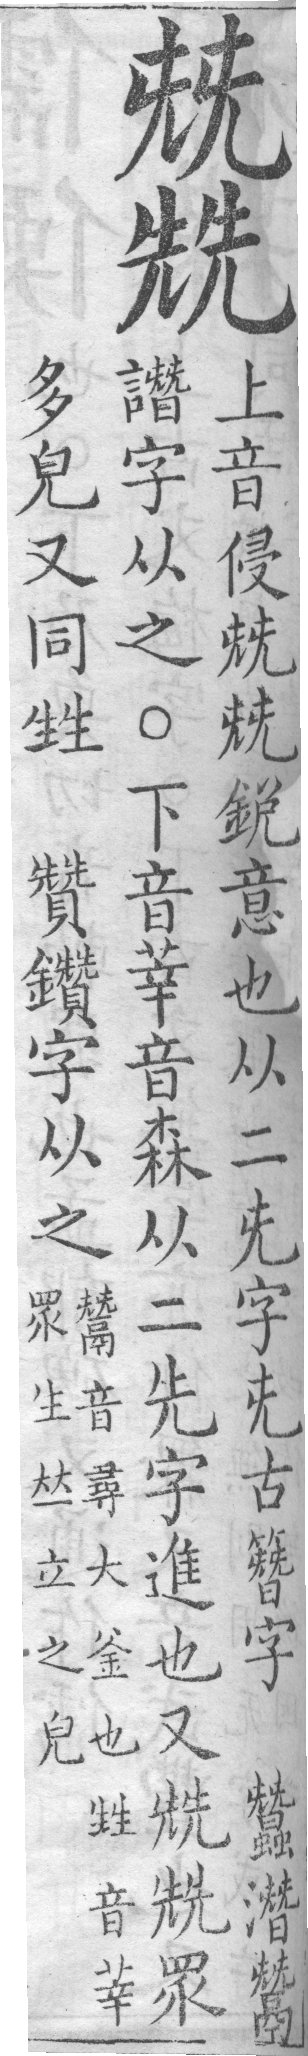 兓兟
上音侵兓兓鋭意也从二旡字旡古簪字 蠶潛鬵
譖字从之○下音莘音森从二先字進也又兟兟眾
多皃又同甡 贊鑽字从之
鬵音尋大釜也甡音莘
眾生𠀤立之皃